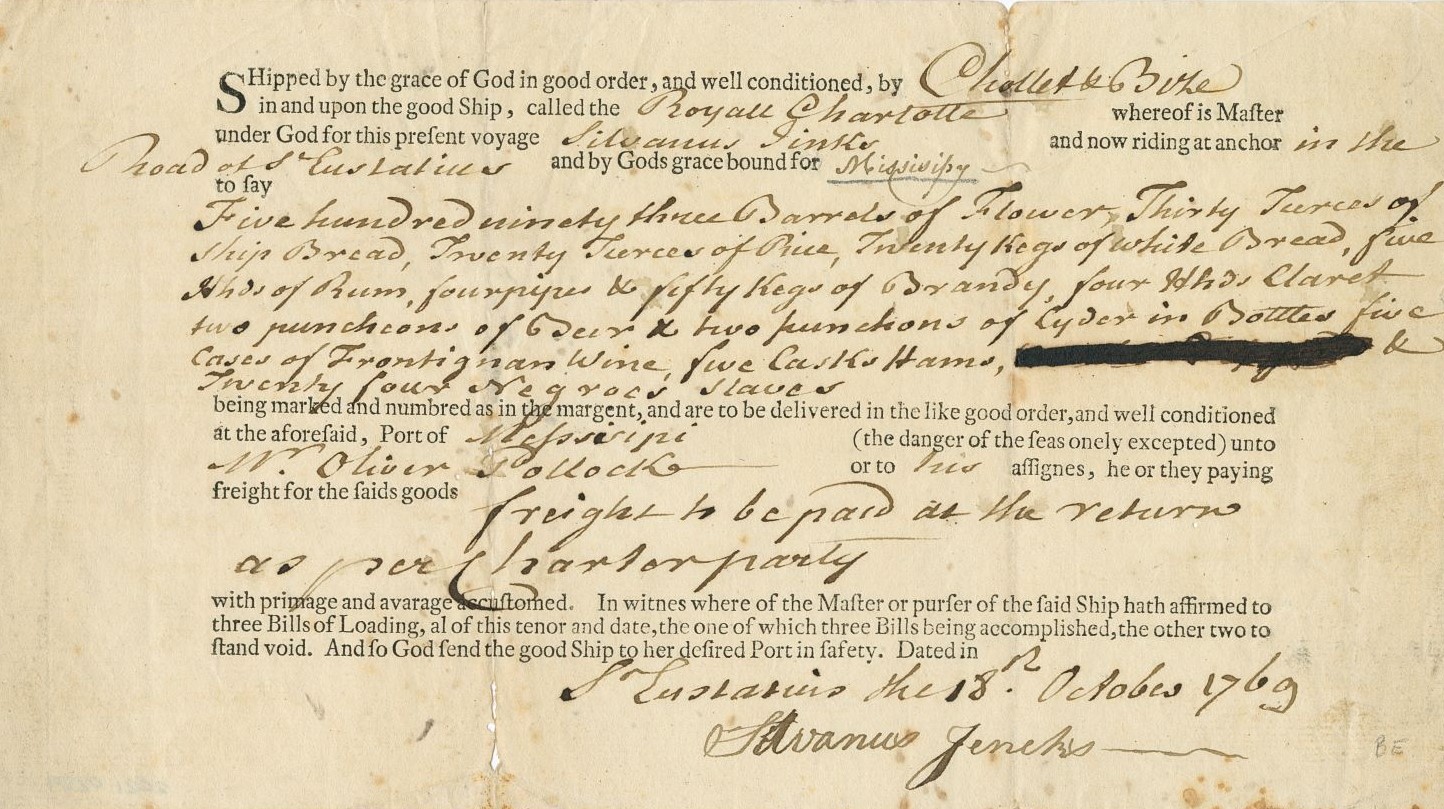 SHipped by the grace of God in good order, and well conditioned, by Chollet & Bize
in and upon the good Ship, called the Royall Charlotte whereof is Maſter
under God for this preſent voyage Silvanus Jinks and now riding at anchor in the
Road of St Eustatius and by Gods grace bound for Missisipy
to ſay
Five hundred ninety three Barrels of Flower, Thirty Tierces of
Ship Bread, Twenty Tierces of Rice, Twenty Kegs of white Bread, five
Hhds of Rum, four pipes & fifty Kegs of Brandy, four Hhds Claret
two puncheons of Beer & two punchons of Cyder in Bottles five
Cases of Frontignan Wine, five Casks Hams, &
Twenty four Negroes Slaves
being marked and numbred as in the margent, and are to be delivered in the like good order, and well conditioned
at the aforeſaid, Port of Messisipi (the danger of the ſeas onely excepted) unto
Mr. Oliver Pollock or to his aſſignes, he or they paying
freight for the ſaids goods
freight to be paid at the return
as per Charterparty
with primage and avarage accuſtomed. In witnes where of the Maſter or purſer of the ſaid Ship hath affirmed to
three Bills of Loading, al of this tenor and date, the one of which three Bills being accompliſhed, the other two to
ſtand void. And ſo God ſend the good Ship to her deſired Port in ſafety. Dated in
St Eustatius the 18th. October 1769
Silvanus Jencks
BE